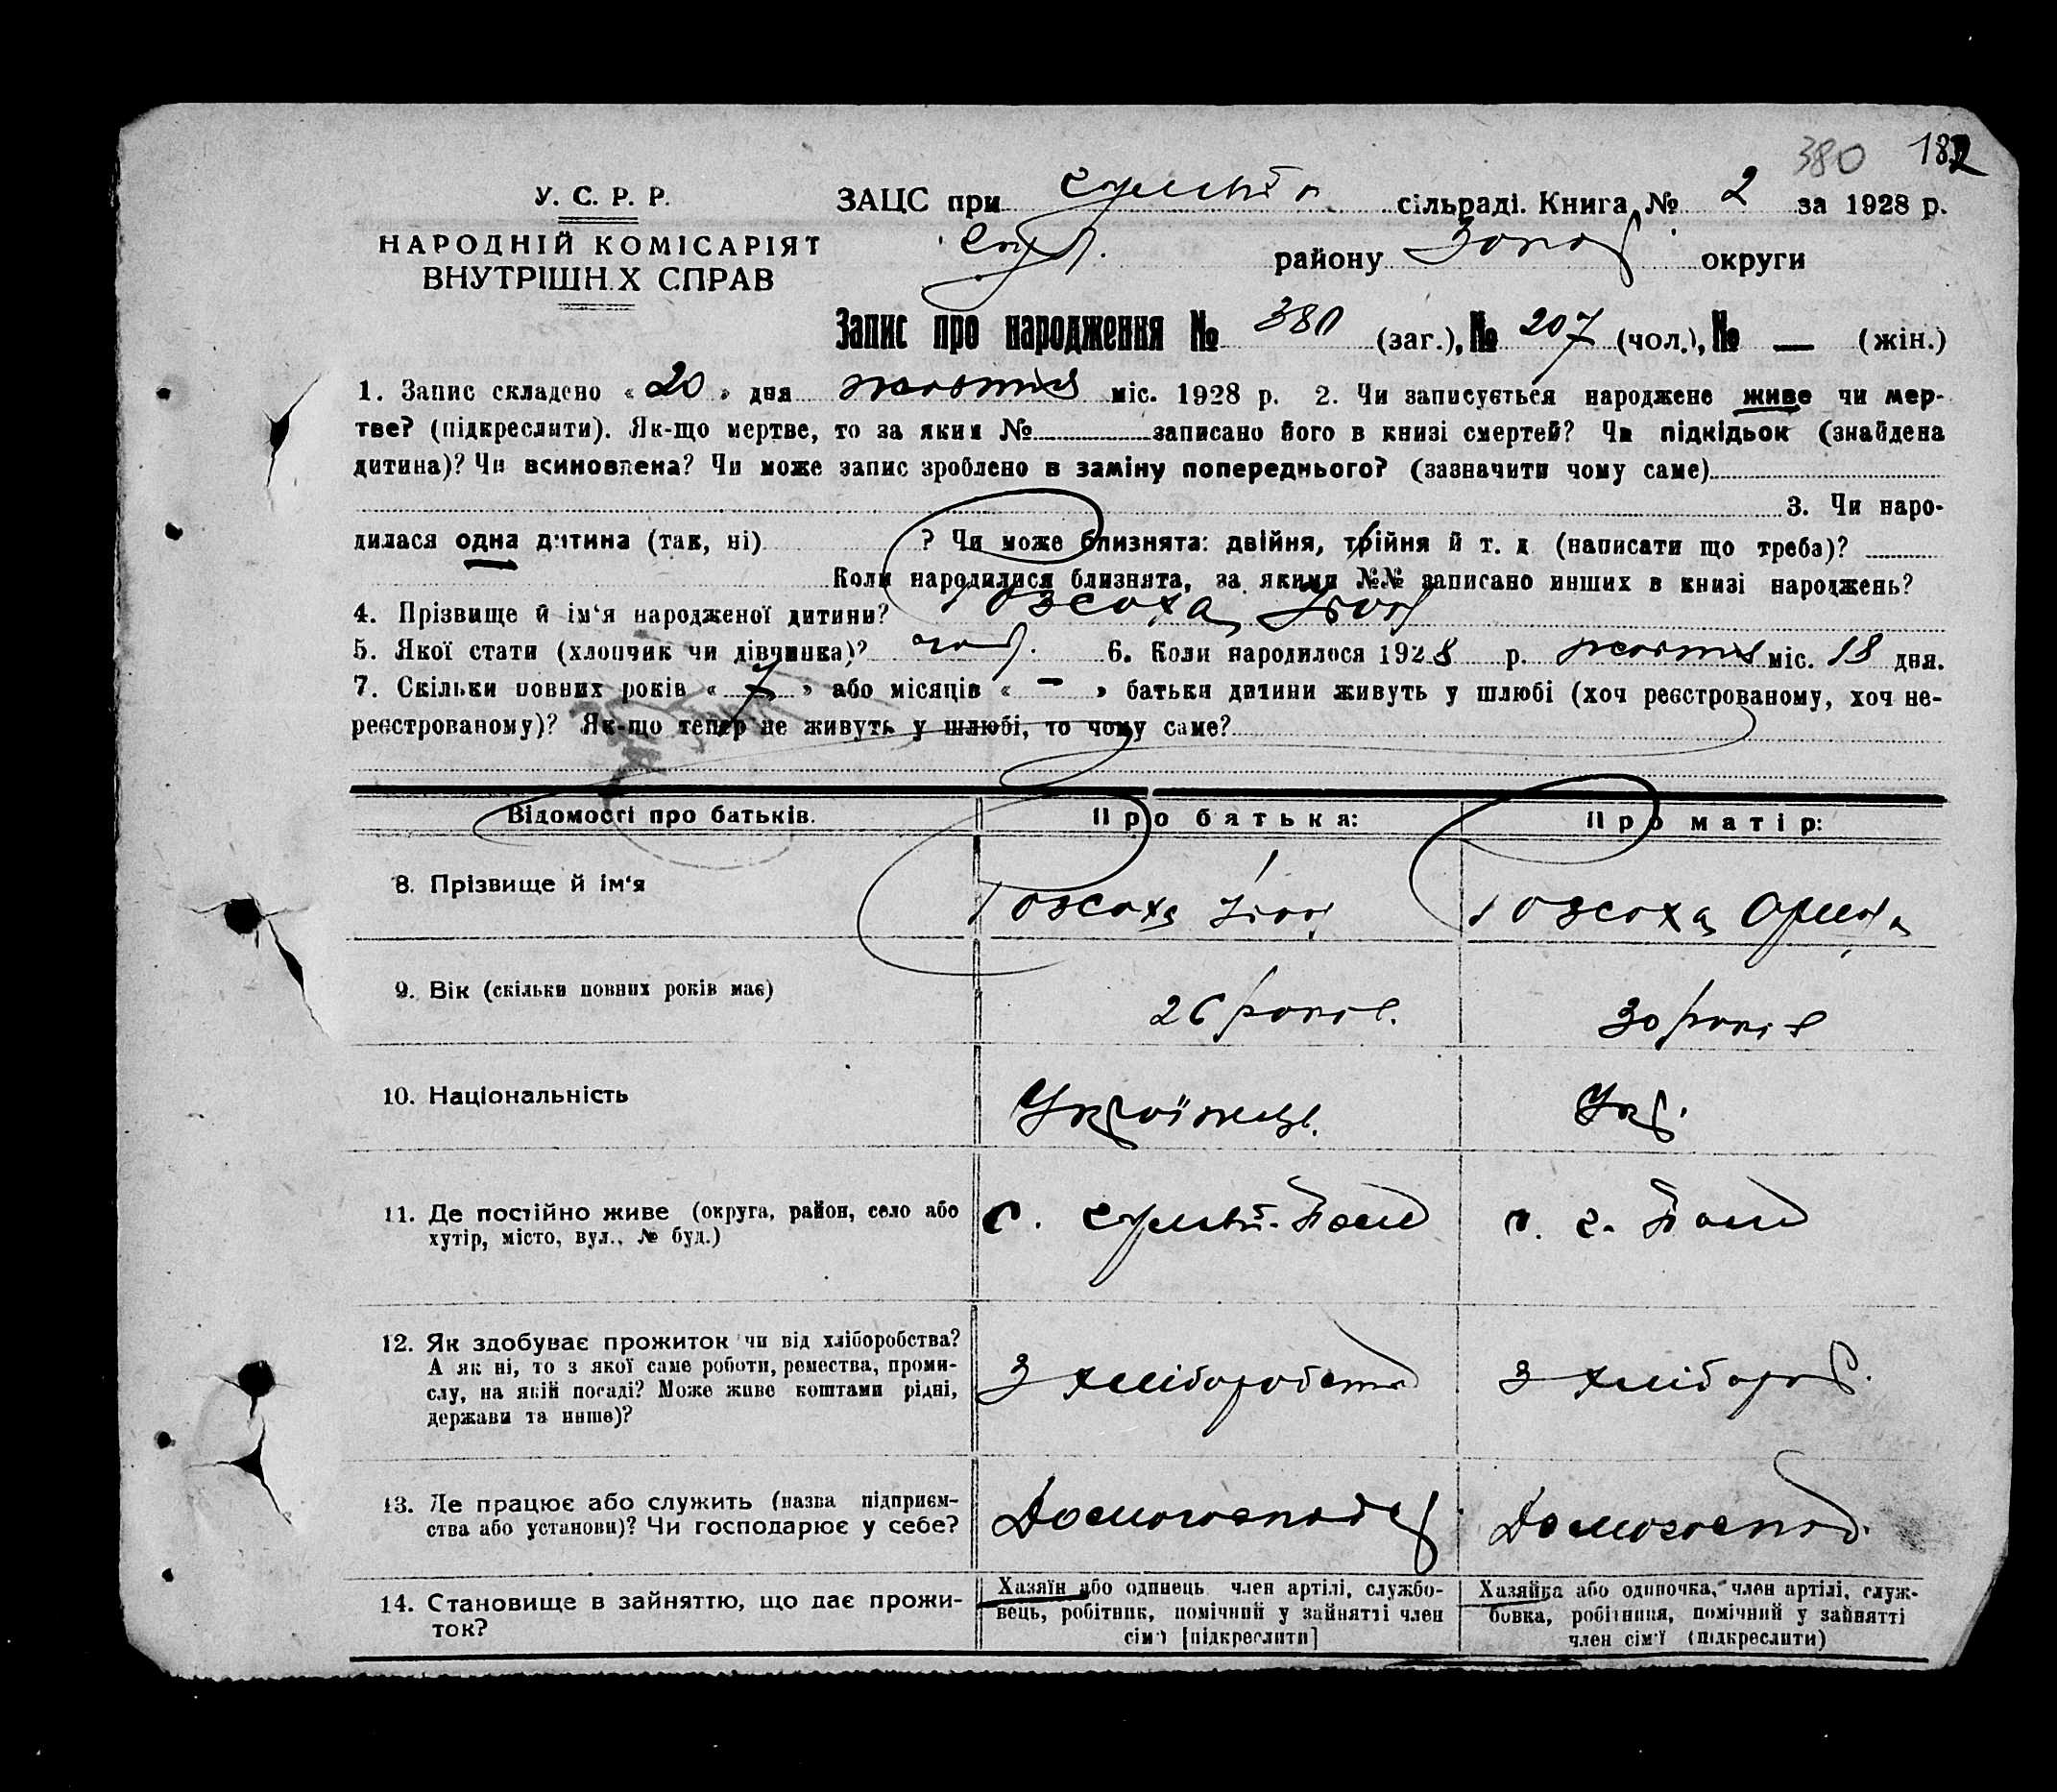 380 182
У. С. Р. Р.
НАРОДНІЙ КОМІСАРІЯТ
ВНУТРІШН.Х СПРАВ
ЗАЦС при сільраді. Книга № 2 за 1928 р.
району Запор округи
Запис про народження № 380 (заг.), № 207 (чол.), № — (жін.)
1. Запис складено « 20 » дня жовтня міс. 1928 р. 2. Чи записується народжене живе чи мер-
тве? (підкреслити). Як-що мертве, то за яким № записано його в книзі смертей? Чи підкідьок (знайдена
дитина)? Чи всиновлена? Чи може запис зроблено в заміну попереднього? (зазначити чому саме)
3. Чи наро-
дилася одна дитина (так, ні) ? Чи може близнята: двійня, трійня й т. д (написати що треба)?
Коли народилися близнята, за якими №№ записано инших в книзі народжень?
4. Прізвище й ім‘я народженої дитини? Рожсоха
5. Якої стати (хлопчик чи дівчинка)? чол. 6. Коли народилося 1928 р. жовтня міс. 18 дня.
7. Скільки повних років « 7 » або місяців « – » батьки дитини живуть у шлюбі (хоч реєстрованому, хоч не-
реєстрованому)? Як-що тепер не живуть у шлюбі, то чому саме?
Відомості про батьків. Про батька: Про матір:
8. Прізвище й ім‘я
9. Вік (скільки повних років має) 26 років. 30 років
10. Національність Українець. Укр.
11. Де постійно живе (округа, район, село або
хутір, місто, вул., № буд.)
12. Як здобуває прожиток чи від хліборобства?
А як ні, то з якої саме роботи, ремества, проми-
слу, на якій посаді? Може живе коштами рідні,
держави та инше)?
З хліборобства З хлібороб.
13. Де працює або служить (назва підприєм-
ства або установи)? Чи господарює у себе?
Домогосподар Домогоспод.
14. Становище в зайняттю, що дає прожи-
ток?
Хазяїн або одинець член артілі, службо-
вець, робітник, помічний у зайнятті член
сім‘ї [підкреслити]
Хазяйка або одиночка, член артілі, служ-
бовка, робітниця, помічний у зайнятті
член сім‘ї (підкреслити)